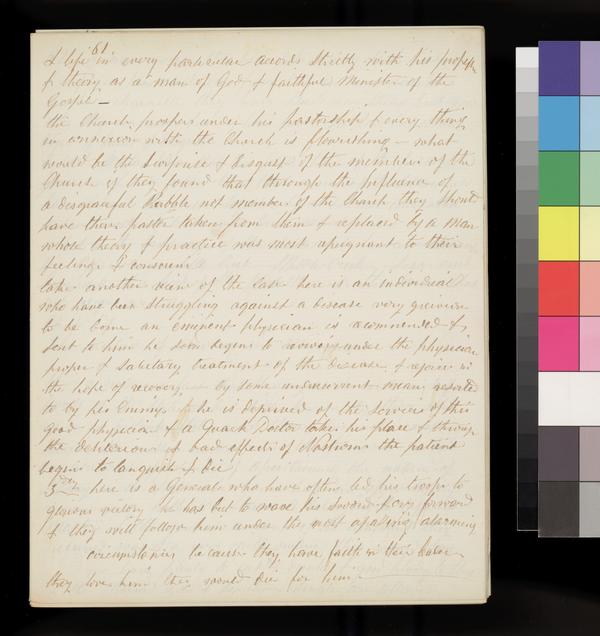 61
& life in every particular accords strictly with his profess
& theory as a man of God & faithful Minister of the
Gospel –
the Church prospers under his pastorship & every thing
in connexion with the Church is flourishing – what
would be the surprise & disgust of the members of the
Church if they found that through the Influence of
a disgraceful Rabble not members of the Church they should
have there pastor taken from them & replaced by a man
whose theory & practice was most repugnant to their
feelings & conscience
take another view of the case here is an individual
who have been struggling against a disease very grievous
to be borne an eminent physician is recommended &
sent to him he soon begins to recover under the physician
proper & salutary treatment of the disease & rejoices in
the hope of recovery by some undercurrent means resorted
to by his Enemy & he is deprived of the services of this
good physician & a Quack Doctor takes his place & through
the deleterious & bad effects of Nostrums the patient
begins to languish & die
3rdly here is a General who have often led his troops to
glorious victory he has but to wave his sword & cry forward
& they will follow him under the most apaling alarming
circumstances because they have faith in their
they love him they would die for him